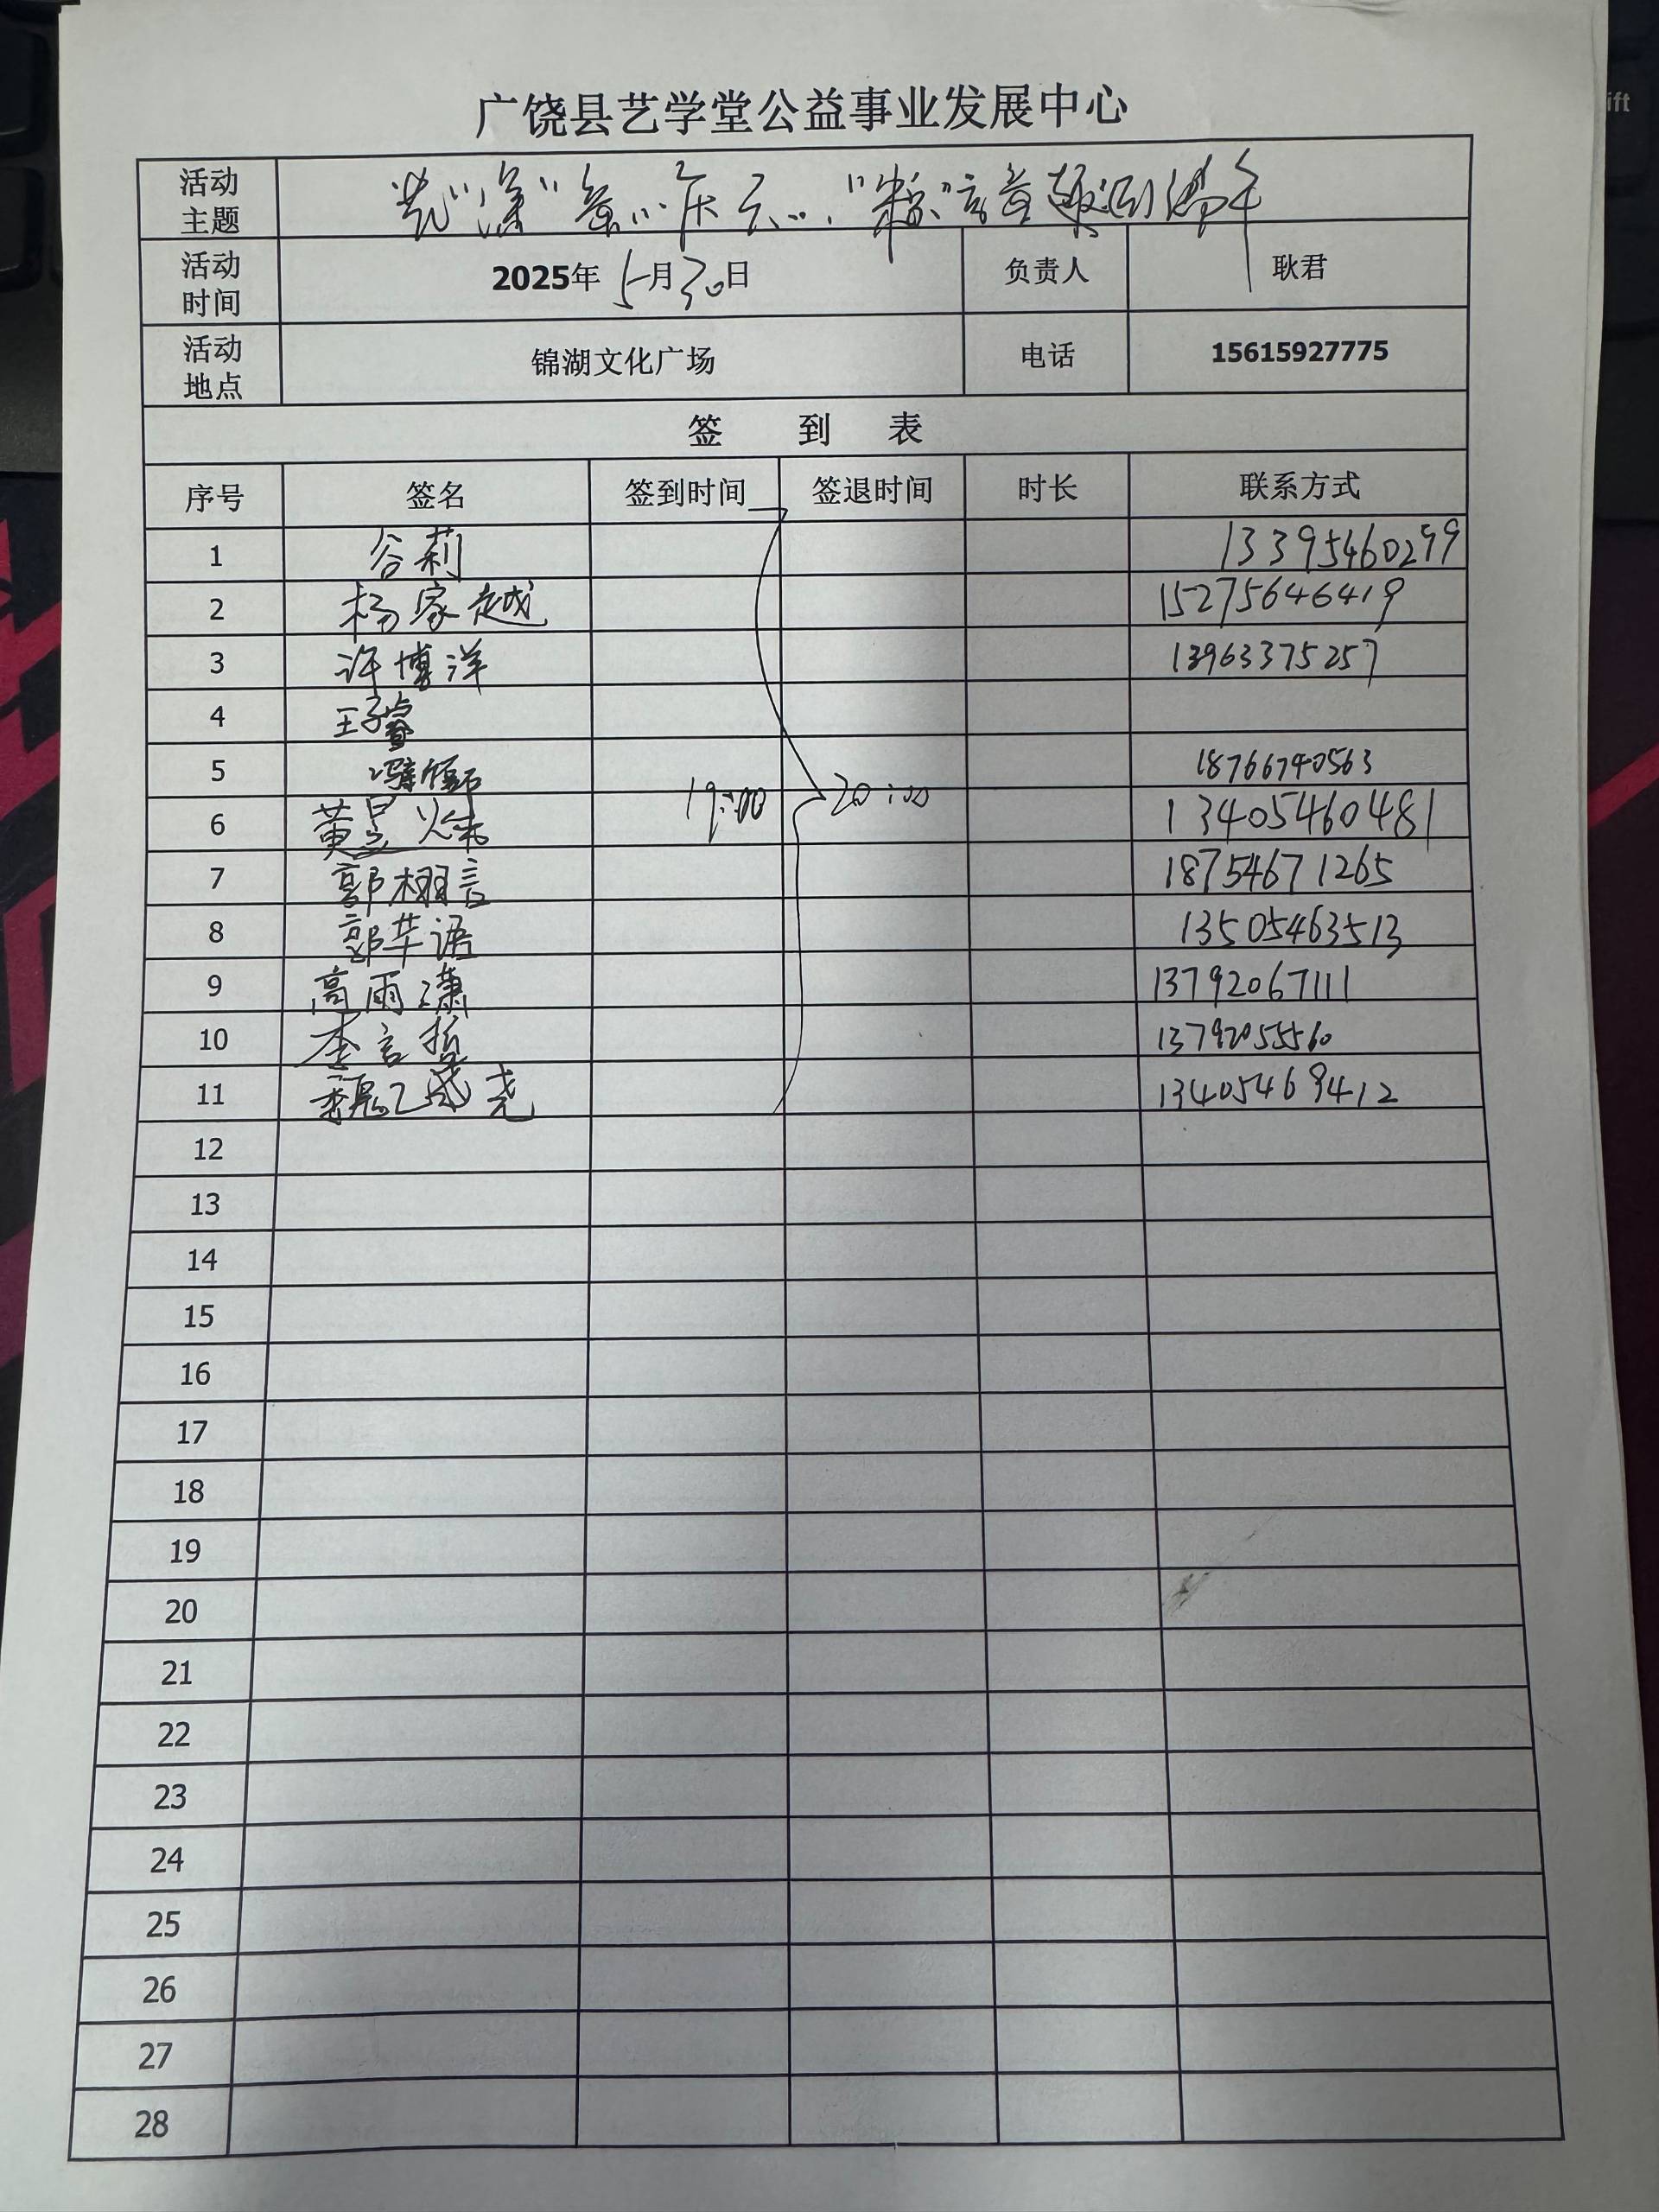 广饶县艺学堂公益事业发展中心
活动主题 艺"漾"童心庆六一,"粽"言童趣闹端午
活动时间 2025年5月30日 负责人 耿君
活动地点 锦湖文化广场 电话 15615927775
签 到 表
序号 签名 签到时间 签退时间 时长 联系方式
1 谷莉 13395460299
2 杨家越 15275646419
3 许博洋 13963375257
4 王子睿
5 18766740563
6 黄昱 19:00 20:00 13405460481
7 郭栩言 18754671265
8 郭芊语 13505463513
9 高雨潇 13792067111
10 李言哲 13792055560
11 尧 13405469412
12
13
14
15
16
17
18
19
20
21
22
23
24
25
26
27
28
ift